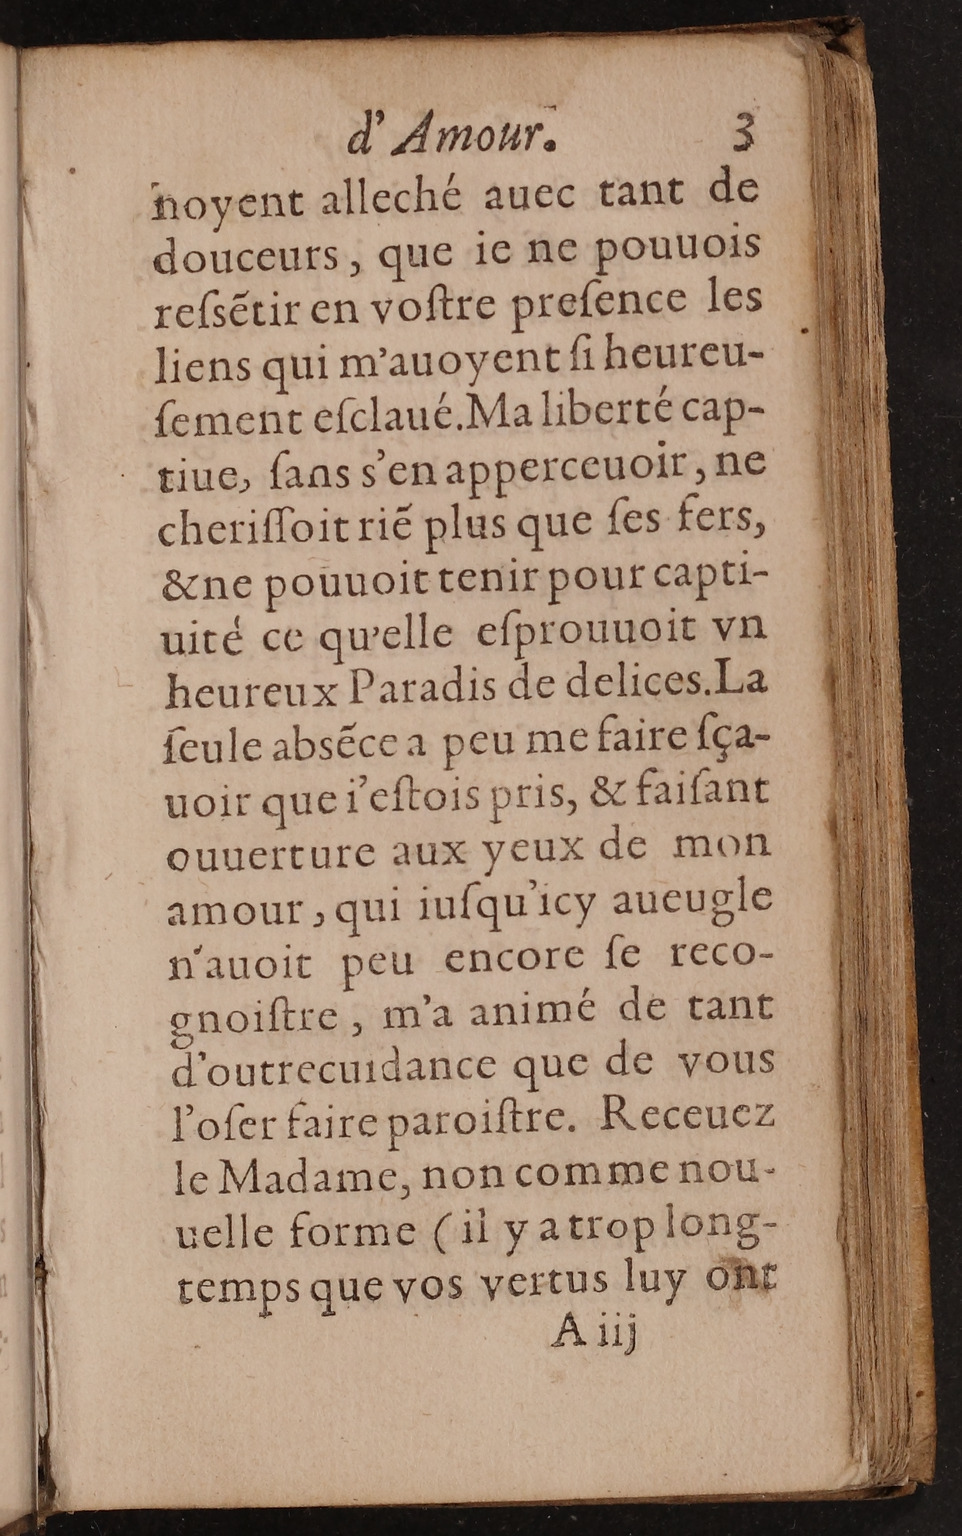 d'Amour. 3
noyent alleché auec tant de
douceurs, que ie ne pouuois
reſsẽtir en voſtre preſence les
liens qui m'auoyent ſi heureu-
ſement eſclaué. Ma liberté cap-
tiue, ſans s'en apperceuoir, ne
cheriſſoit riẽ plus que ſes fers,
& ne pouuoit tenir pour capti-
uité ce qu'elle eſprouuoit vn
heureux Paradis de delices. La
ſeule absẽce a peu me faire ſça-
uoir que i'eſtois pris, & faiſant
ouuerture aux yeux de mon
amour, qui iuſqu'icy aueugle
n'auoit peu encore ſe reco-
gnoiſtre, m'a animé de tant
d'outrecuidance que de vous
l'oſer faire paroiſtre. Receuez
le Madame, non comme nou-
uelle forme (il y a trop long-
temps que vos vertus luy ont
A iij